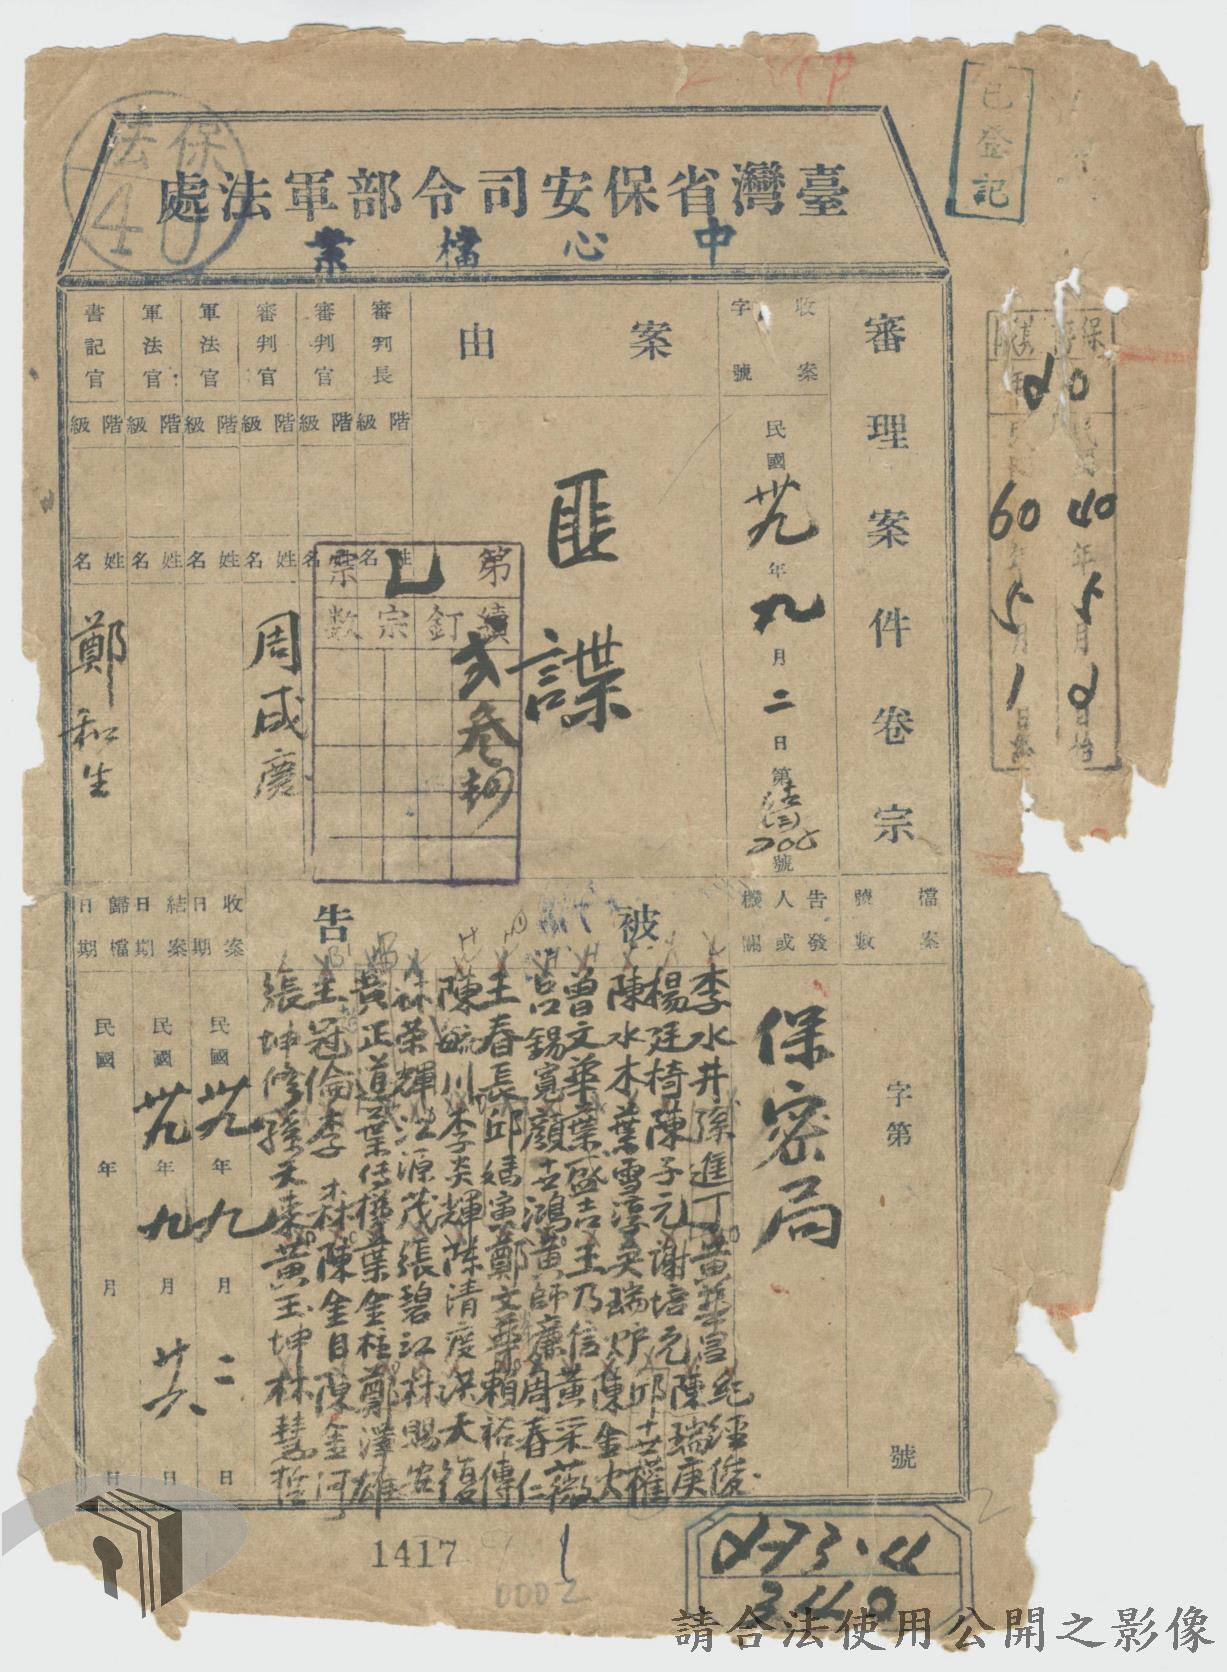 已登記
保
法
40
臺灣省保安司令部軍法處
中心檔案
審理案件卷宗
收案
字號
民國卅九年九月二日第
號
案由
匪諜
審判長
階級
姓名
審判官
階級
姓名
審判官
階級
姓名
周咸慶
軍法官
階級
姓名
軍法官
階級
姓名
書記官
階級
姓名
鄭和生
第
乙
宗
續訂宗數
保
40
40年5月
60年5月1日
檔案號數
字第
號
告發人或機關
保密局
被告
李水井孫進丁黃華昌紀經俊
楊廷椅陳子元謝培元陳瑞庚
陳水木葉雪淳吳瑞炉邱士權
曾文華葉盛吉王乃信陳金火
呂錫寬顏世鴻黃師廉黃采薇
周春仁
王春長邱媽寅鄭文華賴裕傳
陳毓川李炎輝陳清度洪天復
林榮輝江源茂張碧江林賜安
黃正道葉傳樺葉金柱鄭澤雄
王冠倫李森陳金目陳金河
張坤修孫天來黃玉坤林慧哲
收案日期
民國卅九年九月二日
結案日期
民國卅九年九月廿六日
歸檔日期
民國年月日
1417
1
0002
2
3440
請合法使用公開之影像